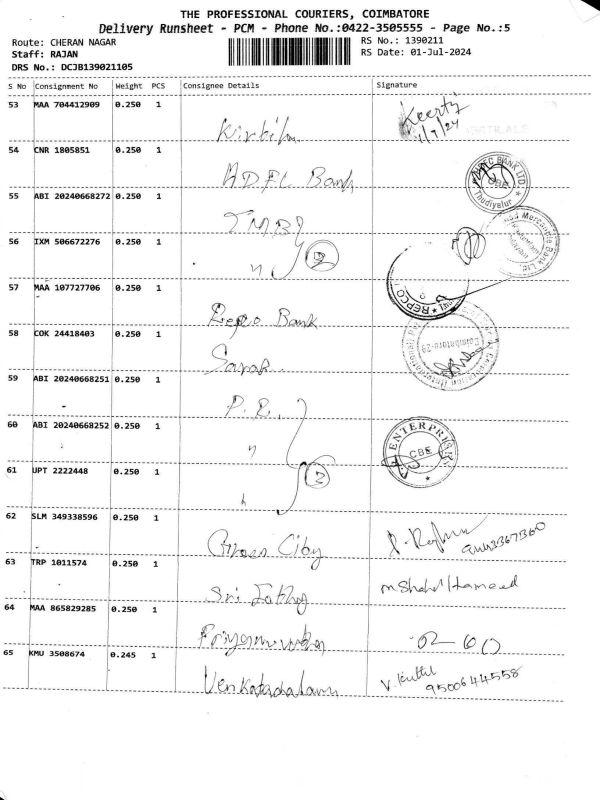 THE PROFESSIONAL COURIERS, COIMBATORE
Delivery Runsheet - PCM - Phone No.:0422-3505555 - Page No.:5
Route: CHERAN NAGAR
RS No.: 1390211
Staff: RAJAN
RS Date: 01-Jul-2024
DRS No.: DCJB139021105
S No Consignment No Weight PCS Consignee Details Signature
53 MAA 704412909 0.250 1
Keerti
1/7/24
54 CNR 1805851 0.250 1
HDFC Bank
HDFC BANK LTD.
CBE
Thudiyalur
55 ABI 20240668272 0.250 1
TMB
Mercantile Bank Ltd.
56 IXM 506672276 0.250 1
"
2
57 MAA 107727706 0.250 1
Repco Bank
REPCO
58 COK 24418403 0.250 1
Sarak
Coimbatore-29
59 ABI 20240668251 0.250 1
P. E.
60 ABI 20240668252 0.250 1
"
ENTERPRISE
CBE
61 UPT 2222448 0.250 1
"
62 SLM 349338596 0.250 1
Green City
63 TRP 1011574 0.250 1
Sri
m Shahul Hameed
64 MAA 865829285 0.250 1
65 KMU 3508674 0.245 1
Venkatachalam
V.
9500644558